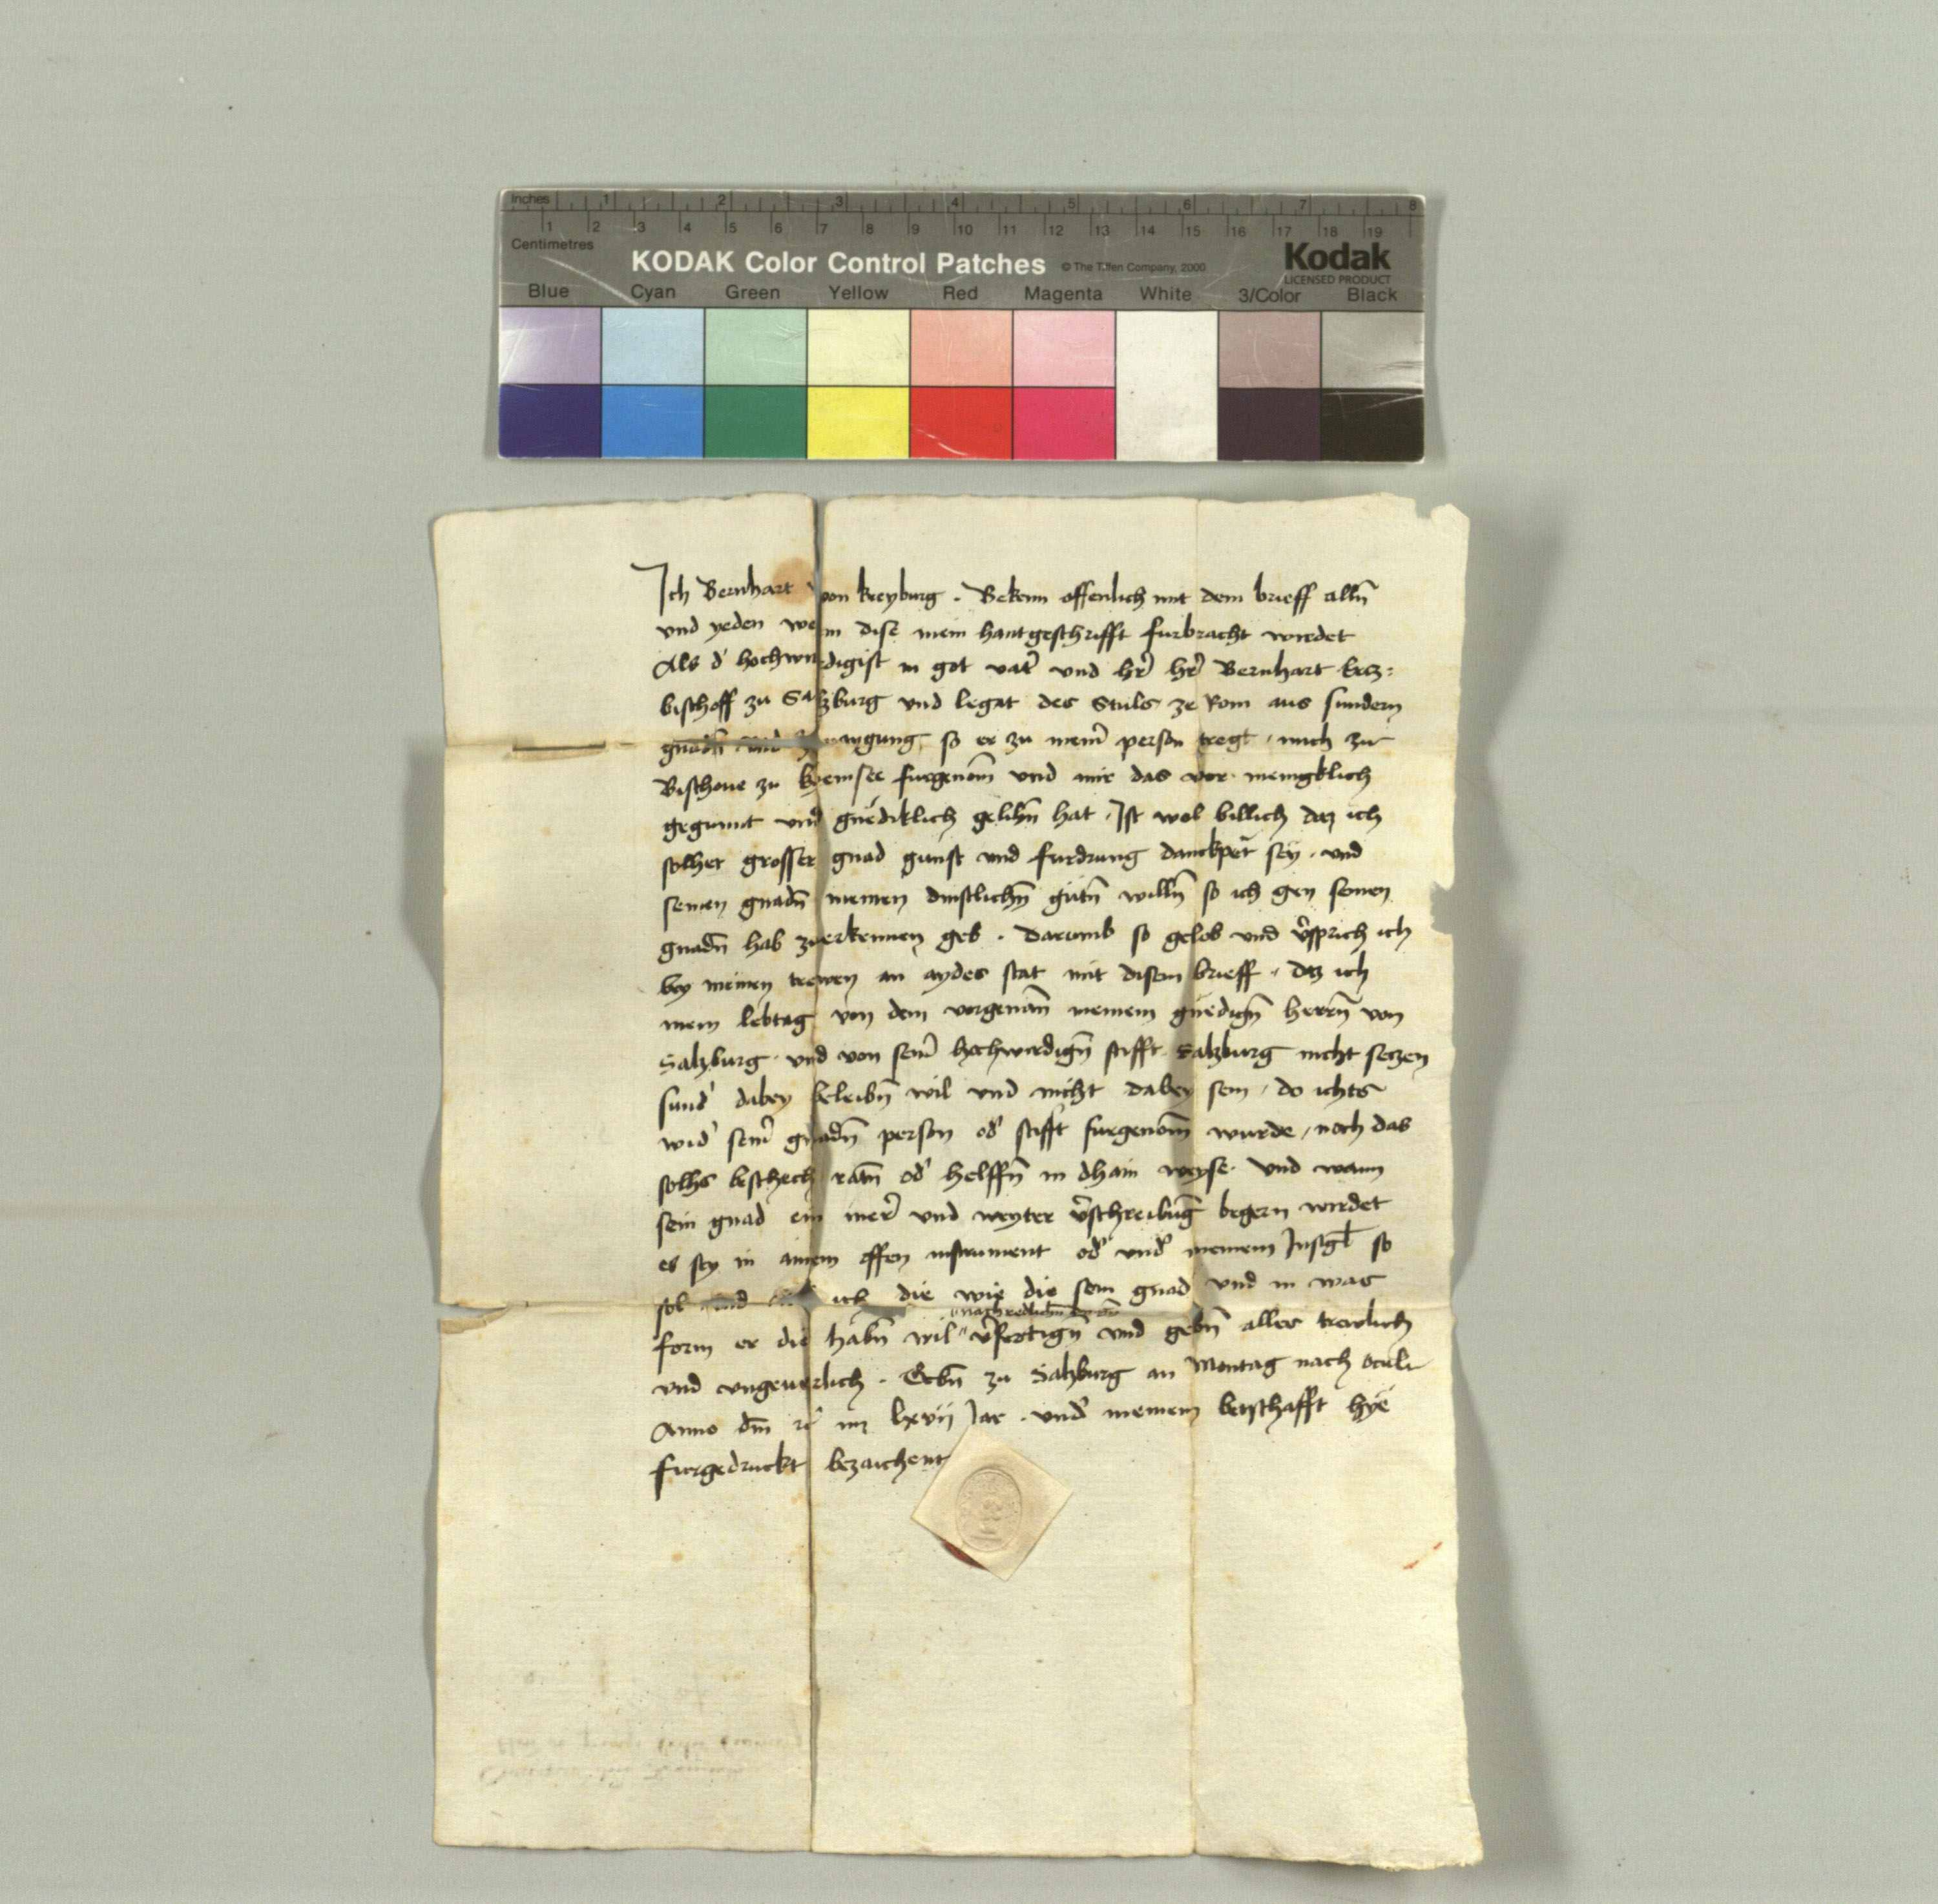 Inches 1 2 3 4 5 6 7 8
1 2 3 4 5 6 7 8 9 10 11 12 13 14 15 16 17 18 19
Centimetres
KODAK Color Control Patches © The Tiffen Company, 2000 Kodak
LICENSED PRODUCT
Blue Cyan Green Yellow Red Magenta White 3/Color Black
Ich Bernhart von kreyburg . Bekenn offenlich mit dem brieff alln̄
vnd yeden wem dise mein hantgeschrifft furbracht wirdet
Als d' hochwirdigist in got vat' vnd hr̄ hr̄ Bernhart Ercz=
bischoff zu Salzburg vnd legat des Stuls ze Rom aus sundern
gnadn̄ vnd so er zu mein' person tregt , mich zu
Bischoue zu kyemsee furgenom̄ vnd mir das vor menigklich
gegunnt vnd gnediklich gelihn̄ hat , Ist wol billich daz ich
solher grosser gnad gunst vnd furdrung danckper sey . vnd
seinen gnadn̄ meinen dinstlichn̄ gutn̄ willn̄ so ich gen seinen
gnadn̄ hab zuerkennen geb . Darumb so gelob vnd v'sprich ich
bey meinen trewen an aydes stat mit disem brieff , daz ich
mein lebtag von dem vorgenan̄ meinem gnedign̄ herrn̄ von
Salzburg vnd von sein' hochwirdign̄ stifft Salzburg nicht seczen
sund' dabey beleibn̄ wil vnd nicht dabey sein , do ichts
wid' sein' gnadn̄ person od' stifft furgenom̄ wurde , noch das
solhs beschech ratn̄ od' helffn̄ in dhain weyse . Vnd wann
sein gnad ein mer' vnd weyter v'schreibūg begern wirdet
es sey in ainem offen instrument od' vnd' meinem Insgl so
sol vnd ich die wie die sein gnad vnd in was
form er die habn̄ wil v'fertign̄ vnd gebn̄ alles trewlich
vnd vngeuerlich . Gebn̄ zu Salzburg an Montag nach Oculi
Anno dm̄ im lxvii Jar . vnd' meinem betschafft hye
furgedruckt bezaichent